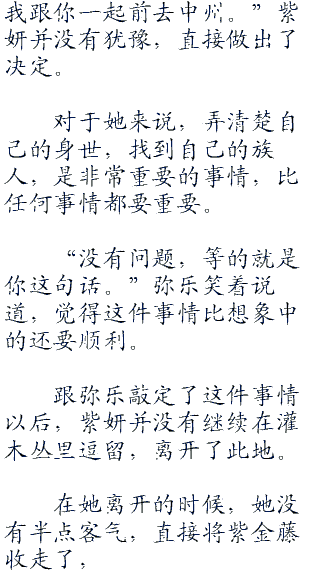 我跟你一起前去中州。”紫
妍并没有犹豫，直接做出了
决定。
对于她来说，弄清楚自
己的身世，找到自己的族
人，是非常重要的事情，比
任何事情都要重要。
“没有问题，等的就是
你这句话。”弥乐笑着说
道，觉得这件事情比想象中
的还要顺利。
跟弥乐敲定了这件事情
以后，紫妍并没有继续在灌
木丛里逗留，离开了此地。
在她离开的时候，她没
有半点客气，直接将紫金藤
收走了，